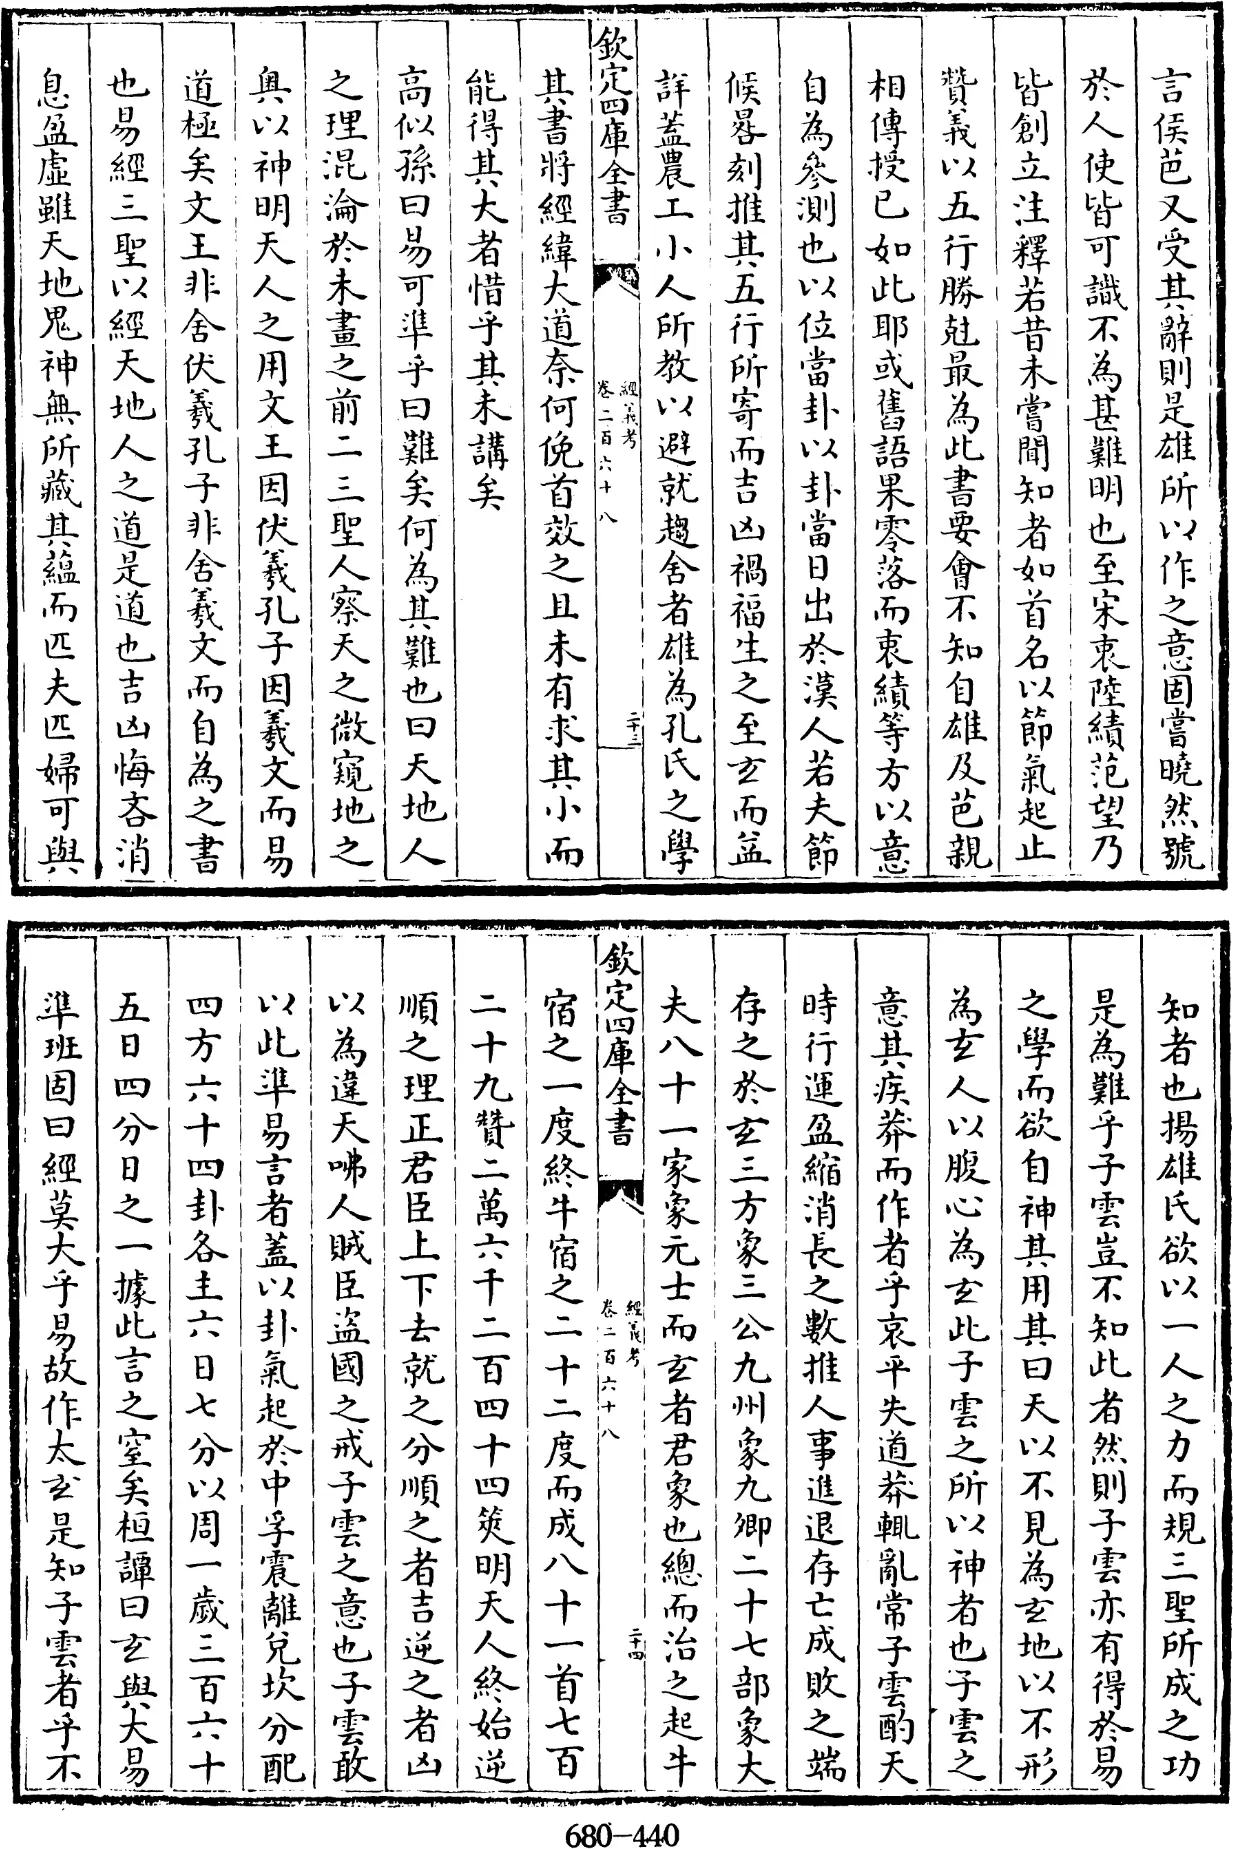 言侯芭又受其辭則是雄所以作之意固當曉然號
於人使皆可識不為甚難明也至宋衷陸績范望乃
皆創立注釋若昔未嘗聞知者如首名以節氣起止
贊義以五行勝尅最為此書要會不知自雄及芭親
相傳授已如此耶或舊語果零落而衷績等方以意
自為參測也以位當卦以卦當日出於漢人若夫節
候晷刻推其五行所寄而吉凶禍福生之至玄而益
詳蓋農工小人所教以避就趨舍者雄為孔氏之學
欽定四庫全書
經義考
卷二百六十八
二十三
其書將經緯大道奈何俛首效之且未有求其小而
能得其大者惜乎其未講矣
高似孫曰易可準乎曰難矣何為其難也曰天地人
之理混淪於未畫之前二三聖人察天之微窺地之
奥以神明天人之用文王因伏羲孔子因羲文而易
道極矣文王非舍伏羲孔子非舍羲文而自為之書
也易經三聖以經天地人之道是道也吉凶悔吝消
息盈虛雖天地鬼神無所藏其蘊而匹夫匹婦可與
知者也揚雄氏欲以一人之力而規三聖所成之功
是為難乎子雲豈不知此者然則子雲亦有得於易
之學而欲自神其用其曰天以不見為玄地以不形
為玄人以腹心為玄此子雲之所以神者也子雲之
意其疾莽而作者乎哀平失道莽輒亂常子雲酌天
時行運盈縮消長之數推人事進退存亡成敗之端
存之於玄三方象三公九州象九卿二十七部象大
夫八十一家象元士而玄者君象也總而治之起牛
欽定四庫全書
經義考
卷二百六十八
二十四
宿之一度終牛宿之二十二度而成八十一首七百
二十九贊二萬六千二百四十四筴明天人終始逆
順之理正君臣上下去就之分順之者吉逆之者凶
以為違天咈人賊臣盜國之戒子雲之意也子雲敢
以此準易言者蓋以卦氣起於中孚震離兌坎分配
四方六十四卦各主六日七分以周一歲三百六十
五日四分日之一據此言之窒矣桓譚曰玄與大易
準班固曰經莫大乎易故作太玄是知子雲者乎不
680-440